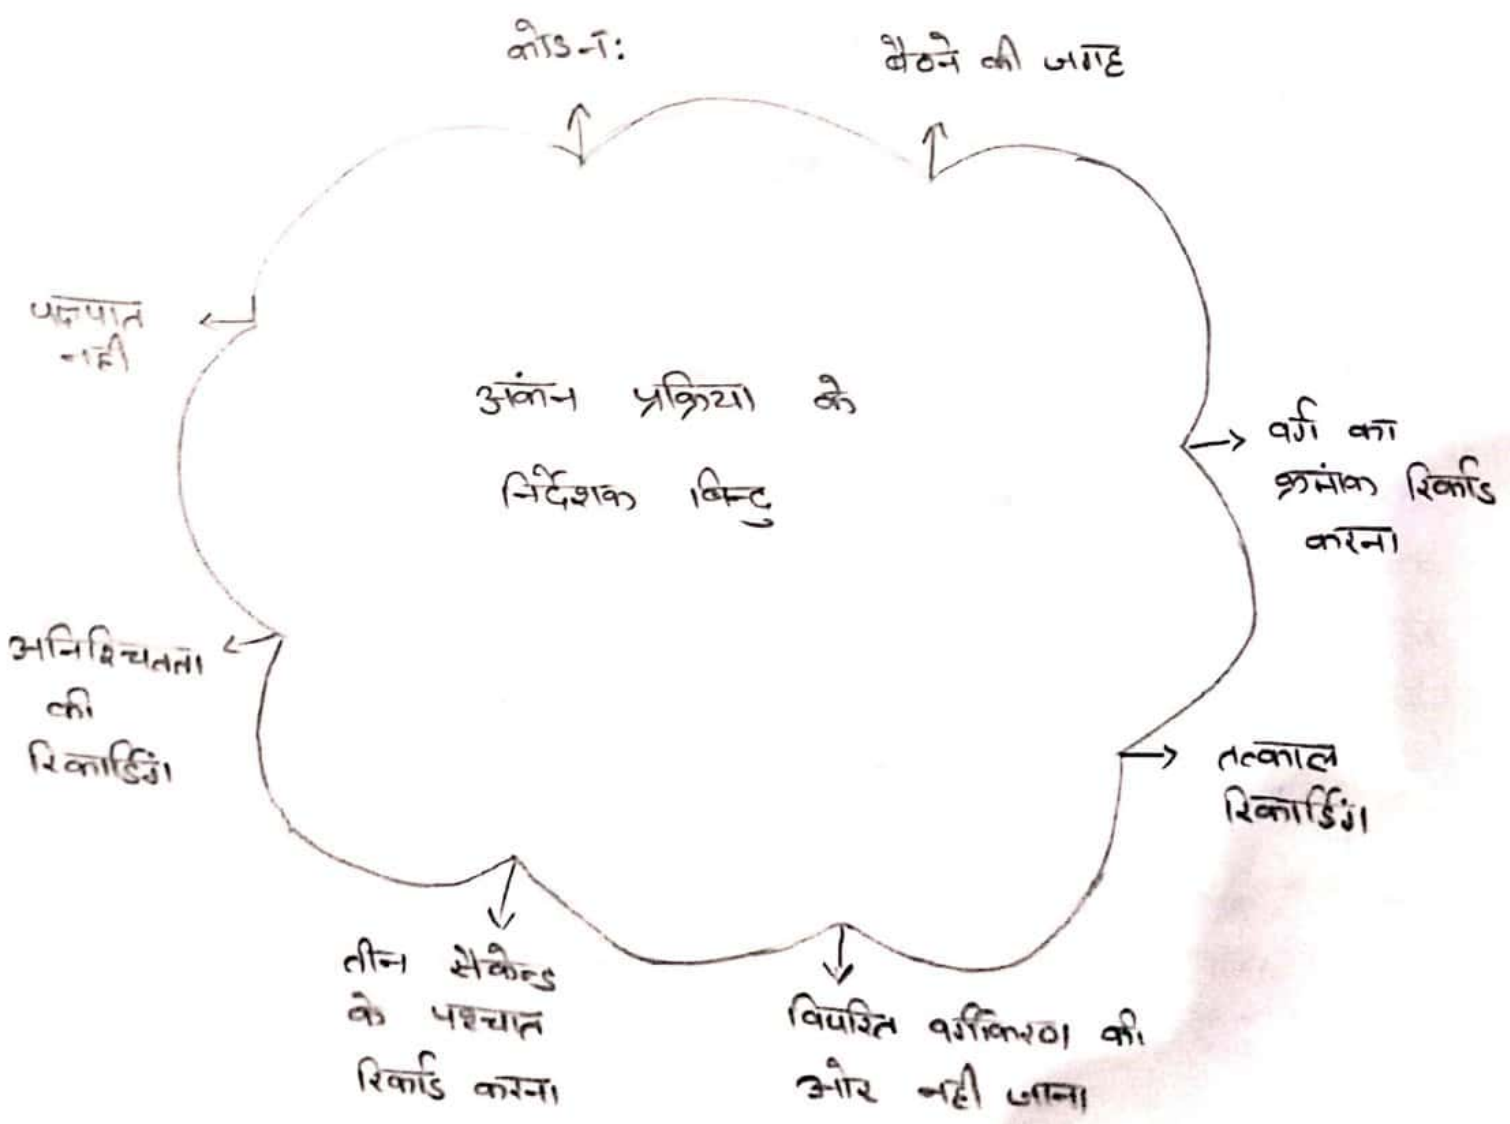 कोड नं:
बैठने की जगह
पक्षपात
नही
अंकन प्रक्रिया के
निर्देशक बिन्दु
वर्ग का
क्रमांक रिकार्ड
करना
अनिश्चितता
की
रिकार्डिंग
तत्काल
रिकार्डिंग
तीन सैकेन्ड
के पश्चात
रिकार्ड करना
विपरित वर्गीकरण की
ओर नही जाना